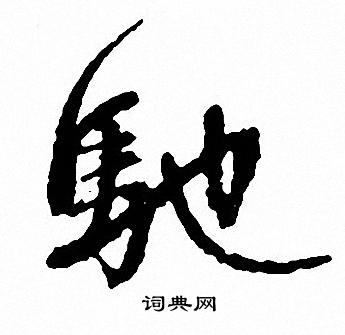 馳
词典网